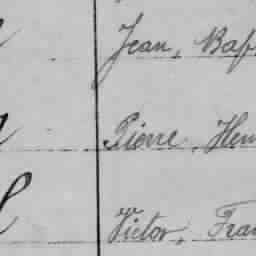 Jean, Bap
Pierre, Hen
Victor, Fran